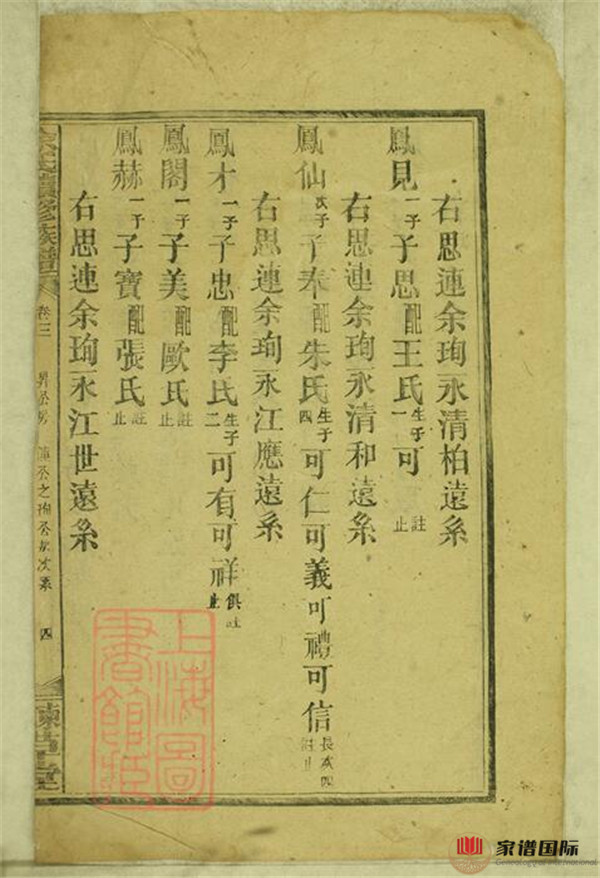 右思連余珣永清柏遠系
鳳見一子子思配王氏生子一可 註止
右思連余珣永清和遠系
鳳仙次子子奉配朱氏生子四可仁可義可禮可信長次四註止
右思連余珣永江應遠系
鳳才一子子忠配李氏生子二可有可祥俱註止
鳳閣一子子美配歐氏註止
鳳赫一子子寶配張氏註止
右思連余珣永江世遠系
續修族譜
卷三
四
上海圖書館藏
家谱国际